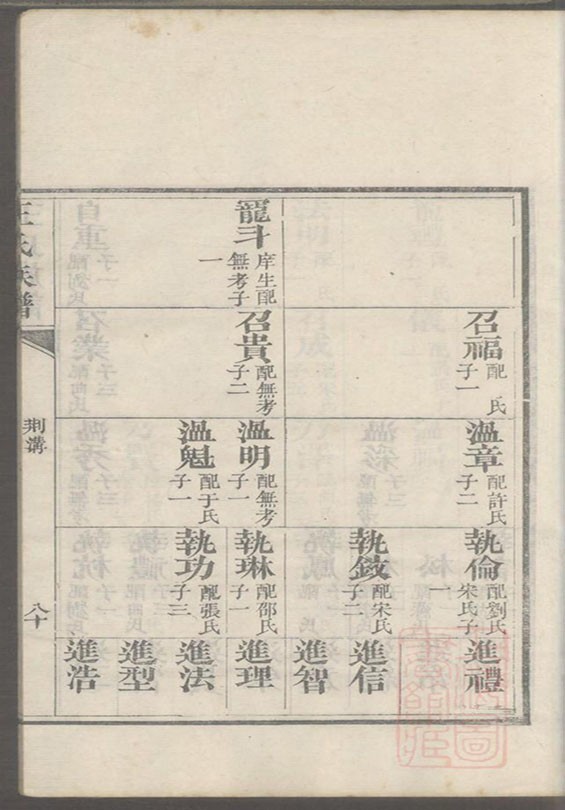 龍斗 庠生配無考子一
召福 配 氏 子一
召貴 配無考 子二
溫章 配許氏 子二
溫明 配無考 子一
溫魁 配于氏 子一
執倫 配劉氏宋氏子一
執鈙 配宋氏 子二
執琳 配邵氏 子一
執功 配張氏 子三
進禮
進信
進智
進理
進法
進型
進浩
王氏族譜
荆溝
八十